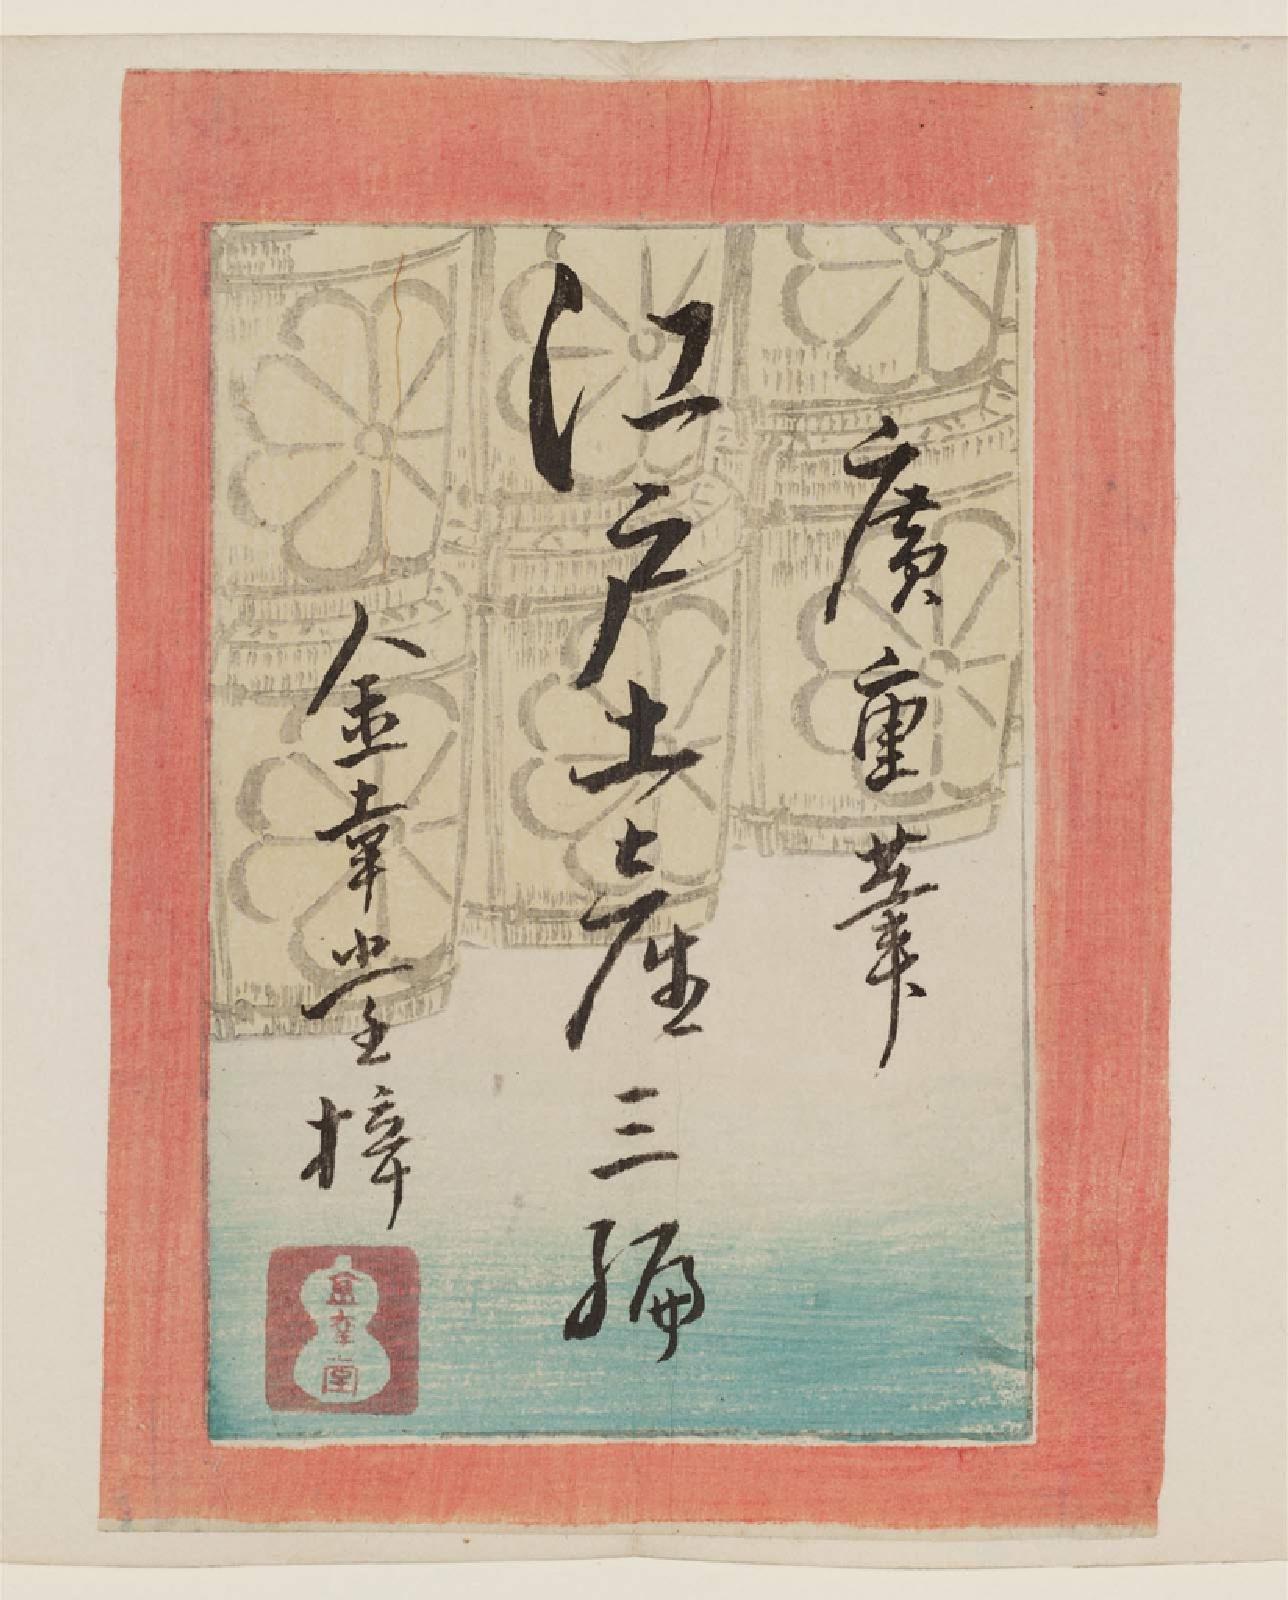 廣重筆
江戸土産三編
金幸堂梓
金幸堂